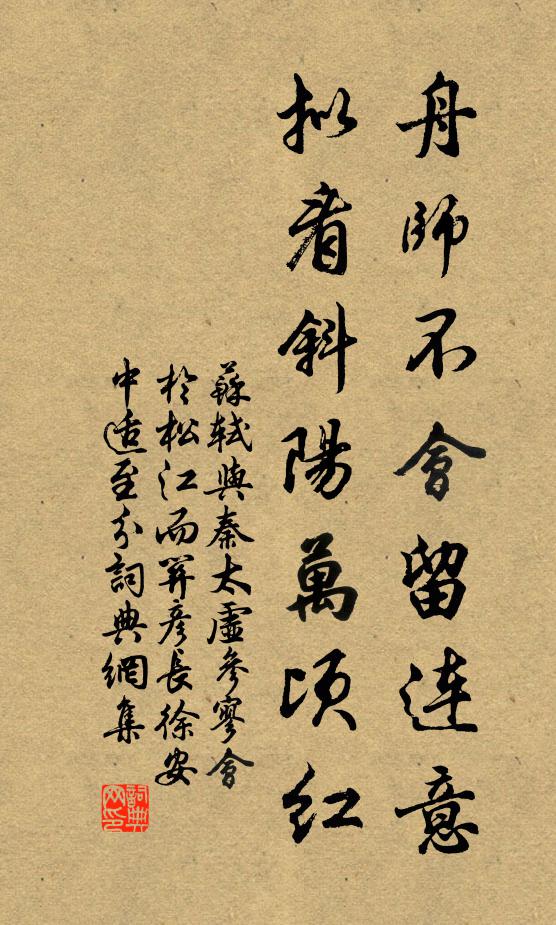 舟師不會留連意
拟看斜陽萬頃红
蘇軾與秦太虛參寥會
於松江而關彦長徐安
中适至分詞典網集
詞典网印